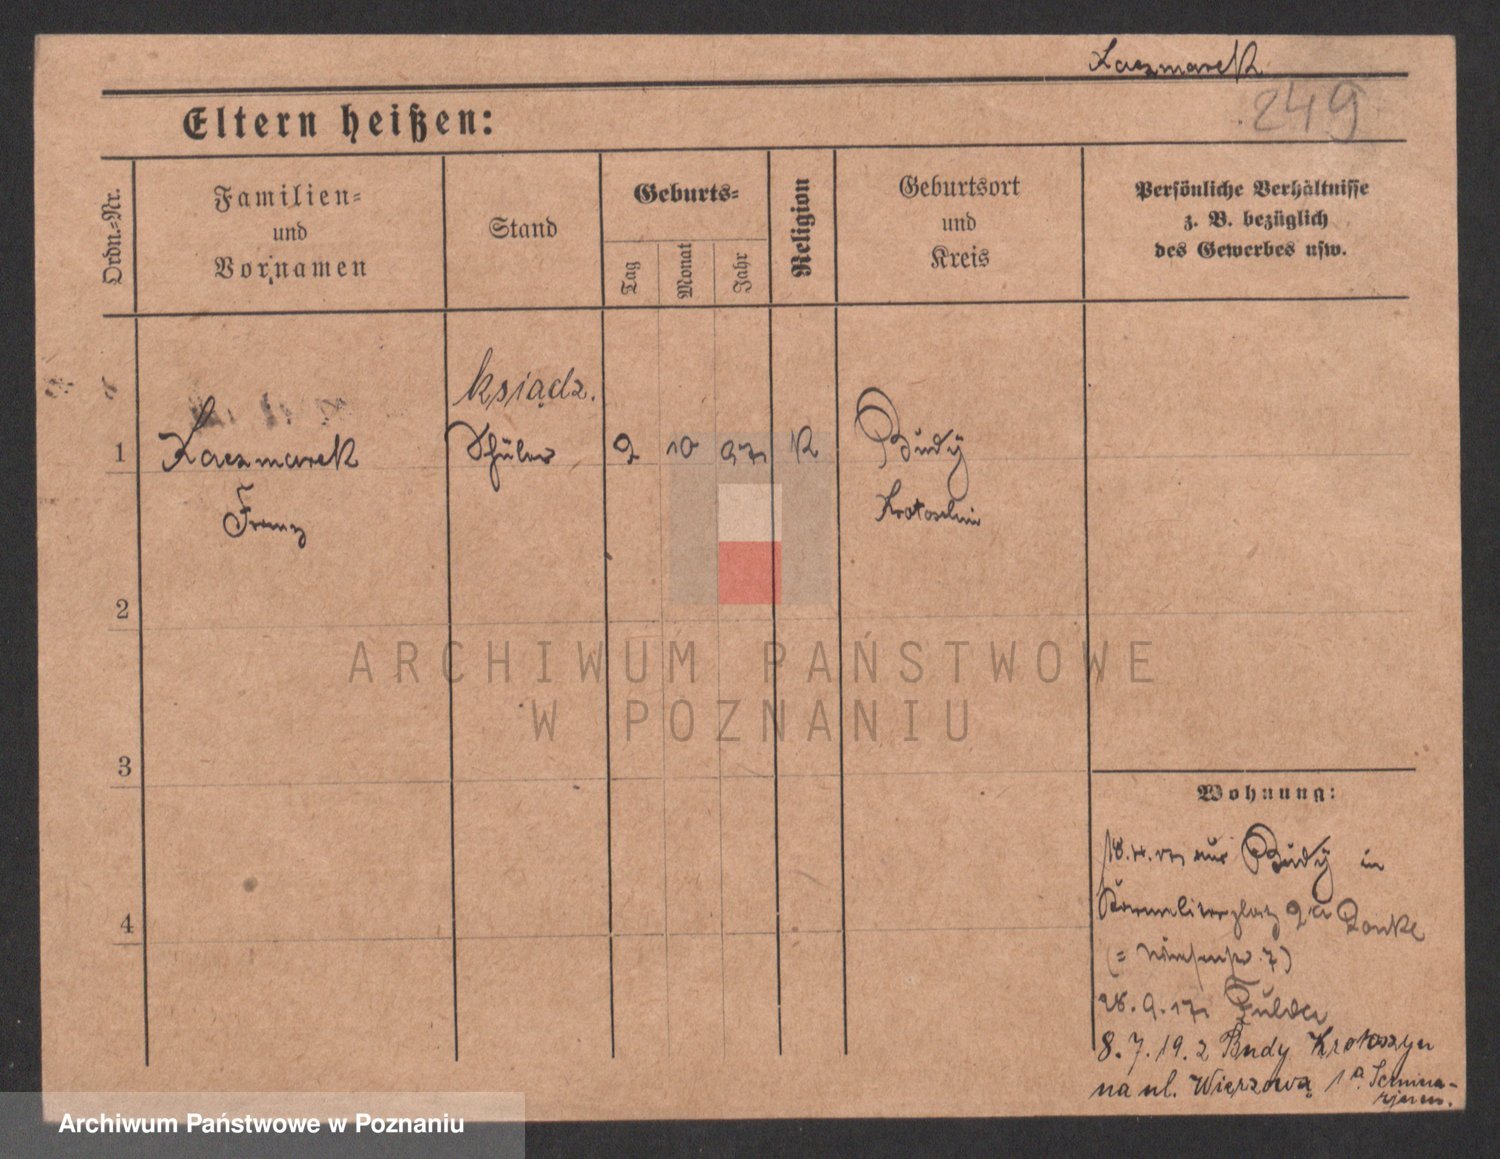 Kaczmarek
249
Eltern heißen:
Ordn.=Nr.
Familien=
und
Vornamen
Stand
Geburts=
Tag
Monat
Jahr
Religion
Geburtsort
und
Kreis
Persönliche Verhältnisse
z. B. bezüglich
des Gewerbes usw.
ksiądz.
1
Kaczmarek
Schüler
2
10
K
Budy
Franz
Krotoschin
2
3
4
Wohnung:
aus Budy in
Karmeliterplatz
28. 9. Fulda
8. 7. 19. z Budy Krotoszyn
na ul. Wieżową 1a. Semina-
rjum.
ARCHIWUM PAŃSTWOWE
W POZNANIU
Archiwum Państwowe w Poznaniu